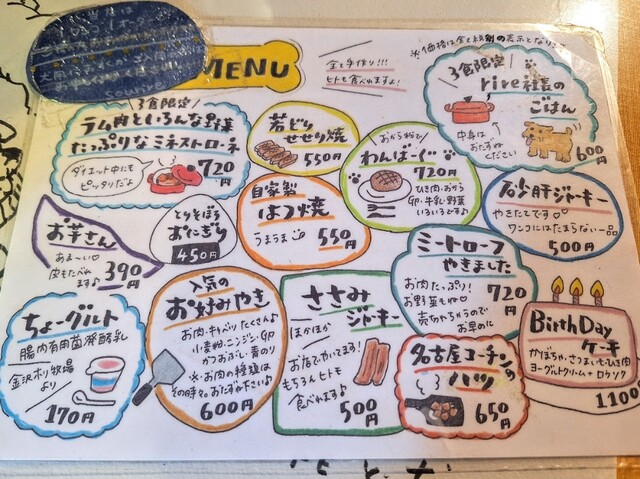 MENU
全て手作り!!!
ヒトも食べれますよ!
※価格は全て税別の表示となります
3食限定
ラム肉といろんな野菜
たっぷりなミネストローネ
720円
ダイエット中にも
ピッタリだよ
若どり
せせり焼
550円
おから粉で!
わんばーぐ
720円
ひき肉・おから
卵・牛乳・野菜
いろいろです♪
3食限定
rire社長の
ごはん
中身は
おたずね
ください
600円
お芋さん
あま〜い♡
皮もたべれ
ます♪
390円
とりそぼろ
おにぎり
450円
自家製
はつ焼
うまうま
550円
ミートローフ
やきました
お肉たっぷり!
お野菜もね♡
売切れちゃうので
お早めに
720円
砂肝ジャーキー
やきたてです♡
ワンコにはたまらない一品
500円
ちょーグルト
腸内有用菌発酵乳
金沢ホリ牧場
より
170円
人気の
お好みやき
お肉・キャベツたくさん♪
小麦粉・ニンジン・卵
かつおぶし・青のり
※お肉の種類は
その時々。おたずね下さい♪
600円
ささみ
ジャーキー
ほかほか
お店でやいてます!
もちろんヒトモ
食べれます♪
500円
名古屋コーチンの
ハツ
650円
BirthDay
ケーキ
かぼちゃ、さつまいも、ひき肉
ヨーグルトクリーム+ロウソク
1100